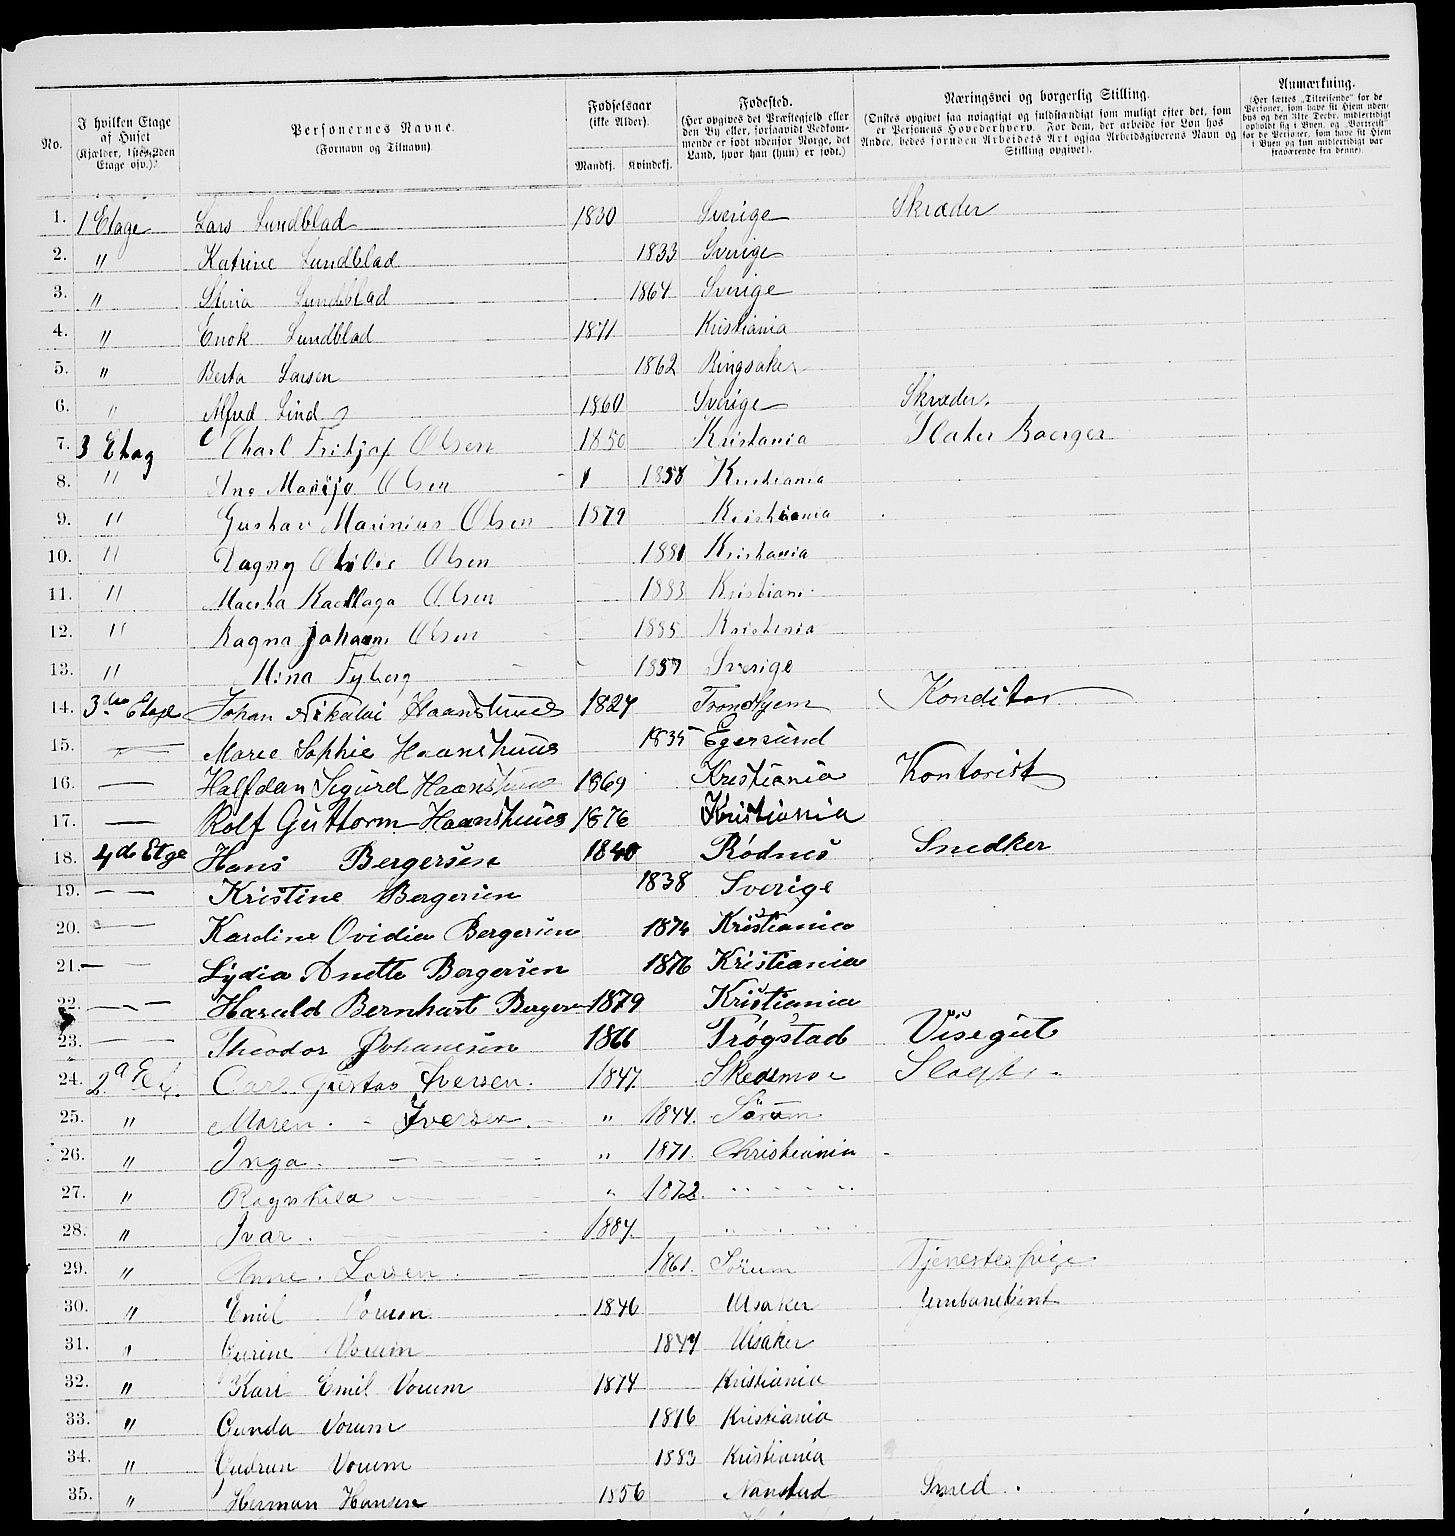 No. I hvilken Etage af Huset (Kjælder, 1ste, 2den Etage osv.)? Personernes Navne. (Fornavn og Tilnavn). Fødselsaar (ikke Alder). Mandkj. Kvindekj. Fødested. (Her opgives det Præstegjeld eller den By eller, forsaavidt Vedkommende er født udenfor Norge, det Land, hvor han (hun) er født.) Næringsvei og borgerlig Stilling. (Ønskes opgivet saa nøiagtigt og fuldstændigt som muligt efter det, som er Personens Hovederhverv. For dem, der arbeide for Løn hos Andre, bedes foruden Arbeidets Art ogsaa Arbeidsgiverens Navn og Stilling opgivet). Anmærkning. (Her sættes „Tilreisende" for de Personer, som have sit Hjem udenbys og den 31te Decbr. midlertidigt opholdt sig i Byen, og „Bortreist" for de Personer, som have sit Hjem i Byen og kun midlertidigt var fraværende fra denne).
1. 1 Etage Lars Lundblad 1830 Sverige Skræder
2. " Katrine Lundblad 1833 Sverige
3. " Stina Lundblad 1864 Sverige
4. " Enok Lundblad 1871 Kristiania
5. " Berta Larsen 1862 Ringsaker
6. " Alfred Lind 1860 Sverige Skræder.
7. 3 Etag Charl Fritjof Olsen 1850 Kristania
8. " Ane Olsen 1858 Kristiania
9. " Gustav Marinius Olsen 1879 Kristiania
10. " Dagny Olsen 1881 Kristania
11. " Olsen 1883 Kristiani
12. " Ragna Johann Olsen 1885 Kristenia
13. " Mina Fyberg 1857 Sverige
14. 3die Etage Johan Nikolai Haanshuus 1827 Trondhjem Konditor
15. — Marie Sophie Haanshuus 1835 Egersund
16. — Halfdan Sigurd Haanshuus 1869 Kristiania Kontorist
17. — Rolf Guttorm Haanshuus 1876 Kristiania
18. 4de Etge Hans Bergersen 1840 Rødnes Snedker
19. — — Kristine Bergersen 1838 Sverige
20. — Karoline Ovidia Bergersen 1874 Kristiania
21. — — Lydia Anette Bergersen 1876 Kristiania
22. — — Harald Bernhart Bergersen 1879 Kristiania
23. — — Theodor Johansen 1866 Trøgstad Visegut
24. 2 Et. Carl Gustav Iversen. 1847. Skedsmoe
25. " Maren. - Iversen. " 1844. Sørum
26. " Inga. — " 1871. Christiania
27. " Ragnhild — " 1872. " " " "
28. " Ivar. — 1884. " " "
29. " Anne. Larsen. 1861. Sørum Tjenestepige
30. " Emil Vorum 1846 Ulsaker Jernbanebetjent
31. " Gurine Vorum 1847 Ulsaker
32. " Karl Emil Vorum 1874 Kristiania
33. " Gunda Vorum 1876 Kristiania
34. " Gudrun Vorum 1883 Kristiania
35. " Herman Hansen 1856 Nanstad Smed.